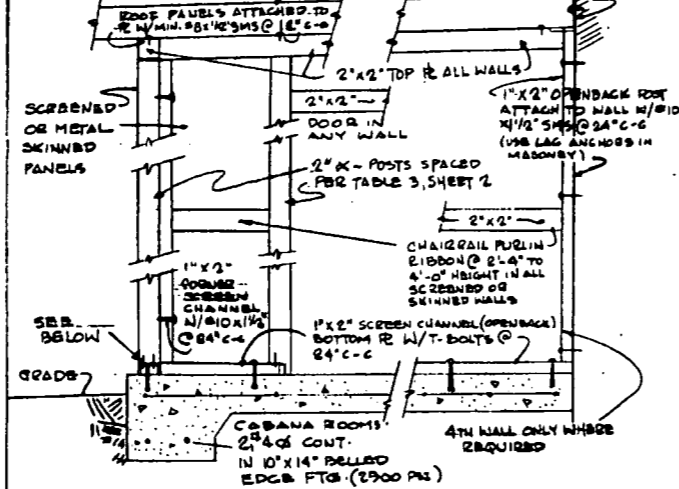 ROOF PANELS ATTACHED TO
PL W/MIN. #8x1/2" SMS @ 12" C-C
2"x2" TOP PL ALL WALLS
SCREENED
OR METAL
SKINNED
PANELS
2"x2"
DOOR IN
ANY WALL
1"x2" OPENBACK POST
ATTACH TO WALL W/#10
x1 1/2" SMS @ 24" C-C
(USE LAG ANCHORS IN
MASONRY)
2" x - POSTS SPACED
PER TABLE 3, SHEET 2
2"x2"
CHAIRRAIL PURLIN
RIBBON @ 2'-4" TO
4'-0" HEIGHT IN ALL
SCREENED OR
SKINNED WALLS
1"x2"
SCREEN
CHANNEL
W/#10x1 1/2"
@ 24" C-C
SEE
BELOW
1"x2" SCREEN CHANNEL (OPENBACK)
BOTTOM PL W/T-BOLTS @
24" C-C
GRADE
CABANA ROOMS
2-#4Ø CONT.
IN 10"x14" BELLED
EDGE FTG. (2500 PSI)
4TH WALL ONLY WHERE
REQUIRED